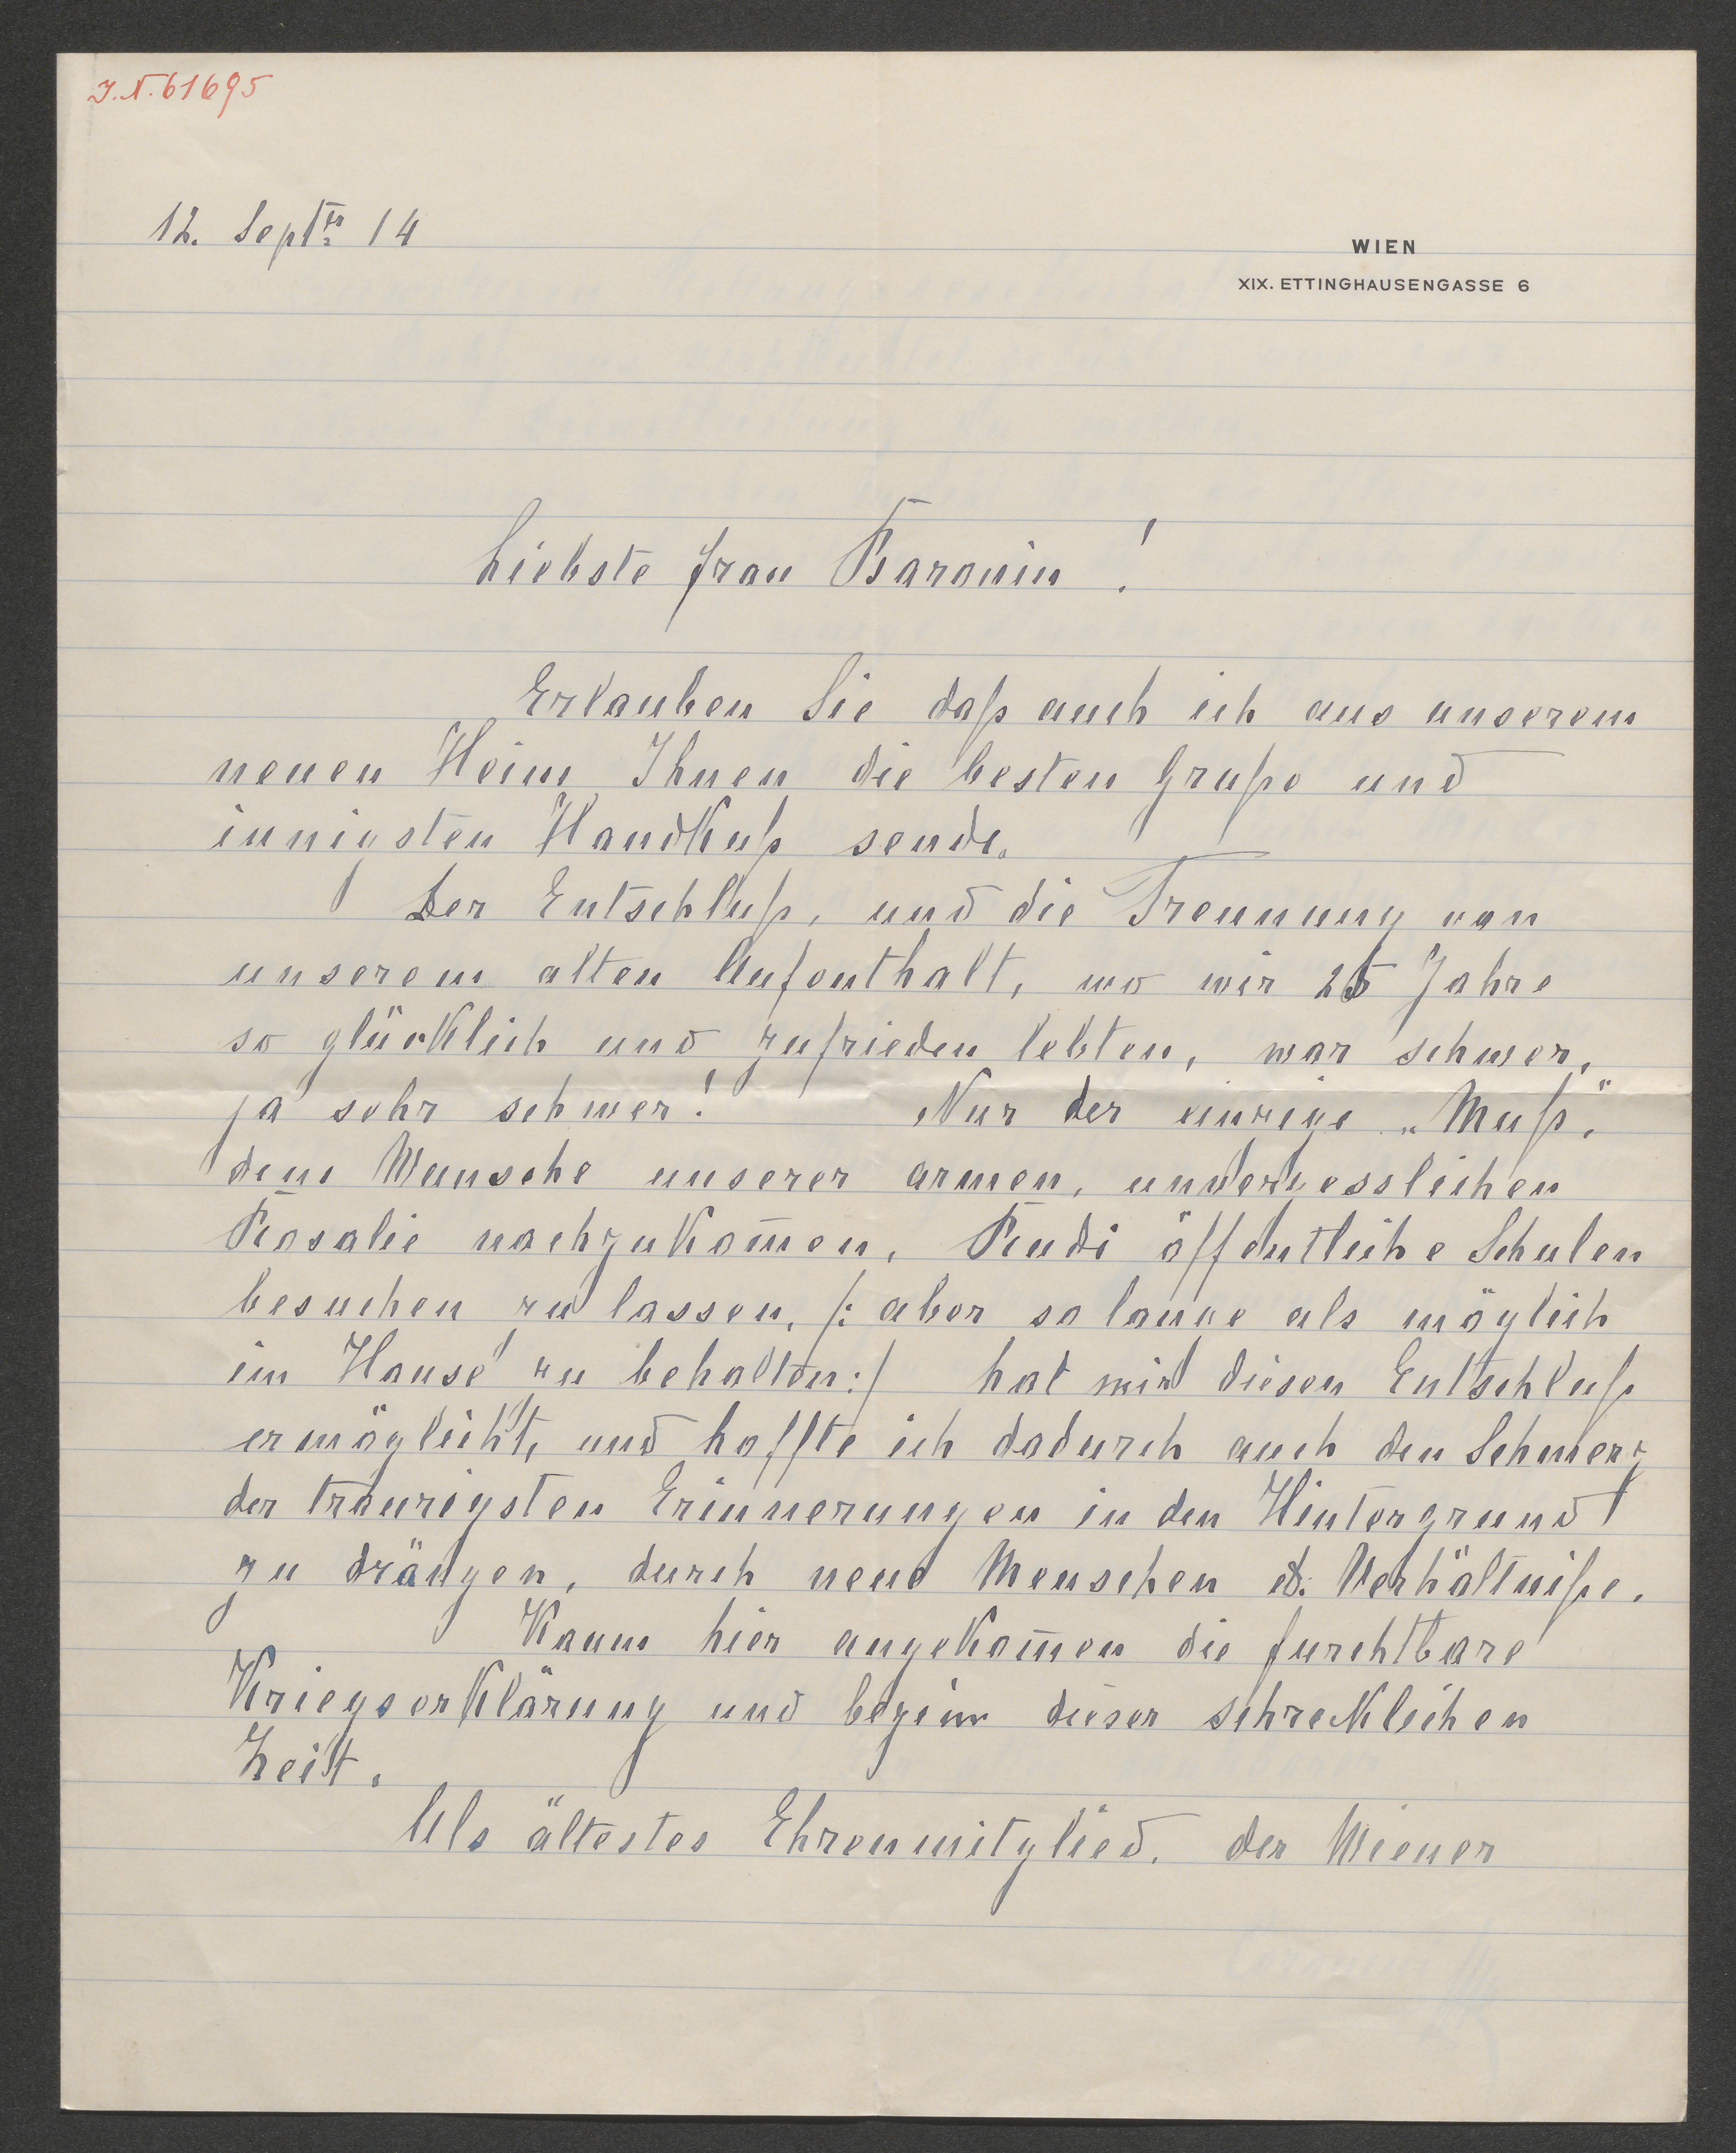 I.N. 61695
12. Septer 14
WIEN
XIX. ETTINGHAUSENGASSE 6
Liebste Frau Baronin!
Erlauben Sie daß auch ich aus unserem
neuen Heim Ihnen die besten Gruße und
innigsten Handkuß sende.
Der Entschluß, und die Trennung von
unserem alten Aufenthalt, wo wir 25 Jahre
so glücklich und zufrieden lebten, war schwer,
ja sehr schwer! Nur der einzige „Muß,"
dem Wunsche unserer armen, unvergesslichen
Rosalie nachzukom̅en, Rudi öffentliche Schulen
besuchen zu lassen, /: aber so lange als möglich
im Hause zu behalten :/ hat mir diesen Entschluß
ermöglicht, und hoffte ich dadurch auch den Schmerz
der traurigsten Erinnerungen in den Hintergrund
zu drängen, durch neue Menschen &. Verhältniße.
Kaum hier angekom̅en die furchtbare
Kriegserklärung und begin dieser schrecklichen
Zeit.
Als ältestes Ehrenmitglied. der Wiener